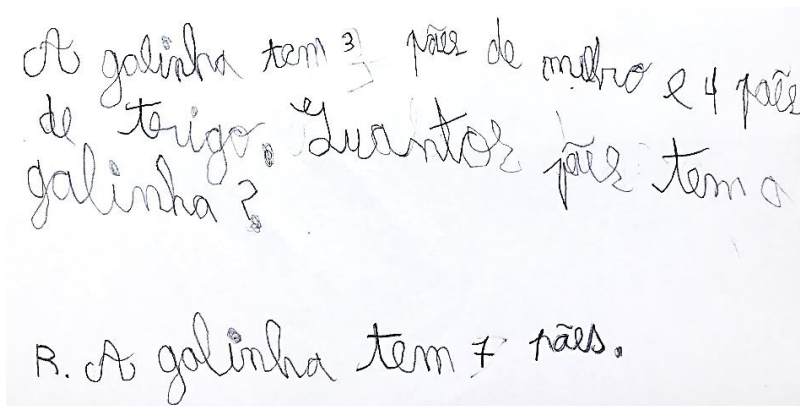 A galinha tem 3 pães de melro e 4 pães
de terigo. Quantos pães tem a
galinha?
R. A galinha tem 7 pães.